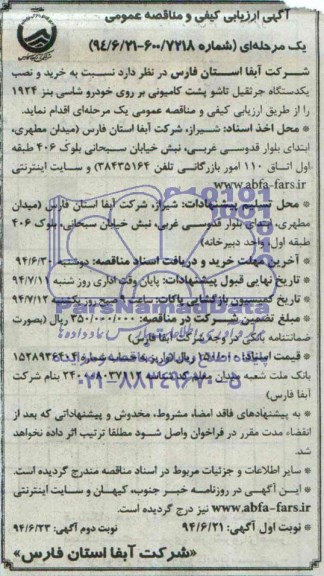 آگهی ارزیابی کیفی و مناقصه عمومی
یک مرحله‌ای (شماره ۶۰۰/۷۲۱۸-۹۴/۶/۲۱)
شرکت آبفا استان فارس در نظر دارد نسبت به خرید و نصب
یکدستگاه جرثقیل تاشو پشت کامیونی بر روی خودرو شاسی بنز ۱۹۲۴
را از طریق ارزیابی کیفی و مناقصه عمومی یک مرحله‌ای اقدام نماید.
* محل اخذ اسناد: شیراز، شرکت آبفا استان فارس (میدان مطهری،
ابتدای بلوار قدوسی غربی، نبش خیابان سبحانی بلوک ۴۰۶ طبقه
اول اتاق ۱۱۰ امور بازرگانی تلفن ۳۸۴۳۵۱۶۴) و سایت اینترنتی
www.abfa-fars.ir
* محل تسلیم پیشنهادات: شیراز، شرکت آبفا استان فارس (میدان
مطهری، ابتدای بلوار قدوسی غربی، نبش خیابان سبحانی، بلوک ۴۰۶
طبقه اول، واحد دبیرخانه)
* آخرین مهلت خرید و دریافت اسناد مناقصه: دوشنبه ۹۴/۶/۳۰
* تاریخ نهایی قبول پیشنهادات: پایان وقت اداری روز شنبه ۹۴/۷/۱۱
* تاریخ کمیسیون بازگشایی پاکات: ساعت ۹ صبح روز یکشنبه ۹۴/۷/۱۲
* مبلغ تضمین شرکت در مناقصه: ۲۵۰/۰۰۰/۰۰۰ ریال (بصورت
ضمانتنامه بانکی در وجه شرکت آبفا فارس)
* قیمت اسناد: ریال (واریز به حساب شماره
بانک ملت شعبه میدان معلم کد شناسه بنام شرکت
آبفا فارس)
* به پیشنهادهای فاقد امضاء، مشروط، مخدوش و پیشنهاداتی که بعد از
انقضاء مدت مقرر در فراخوان واصل شود مطلقا ترتیب اثر داده نخواهد
شد.
* سایر اطلاعات و جزئیات مربوط در اسناد مناقصه مندرج گردیده است.
* این آگهی در روزنامه خبر جنوب، کیهان و سایت اینترنتی
www.abfa-fars.ir نیز درج گردیده است.
* نوبت اول آگهی: ۹۴/۶/۲۱ نوبت دوم آگهی: ۹۴/۶/۲۳
«شرکت آبفا استان فارس»
ParsNamadData
۰۲۱-۸۸۳۴۹۶۷۰-۵